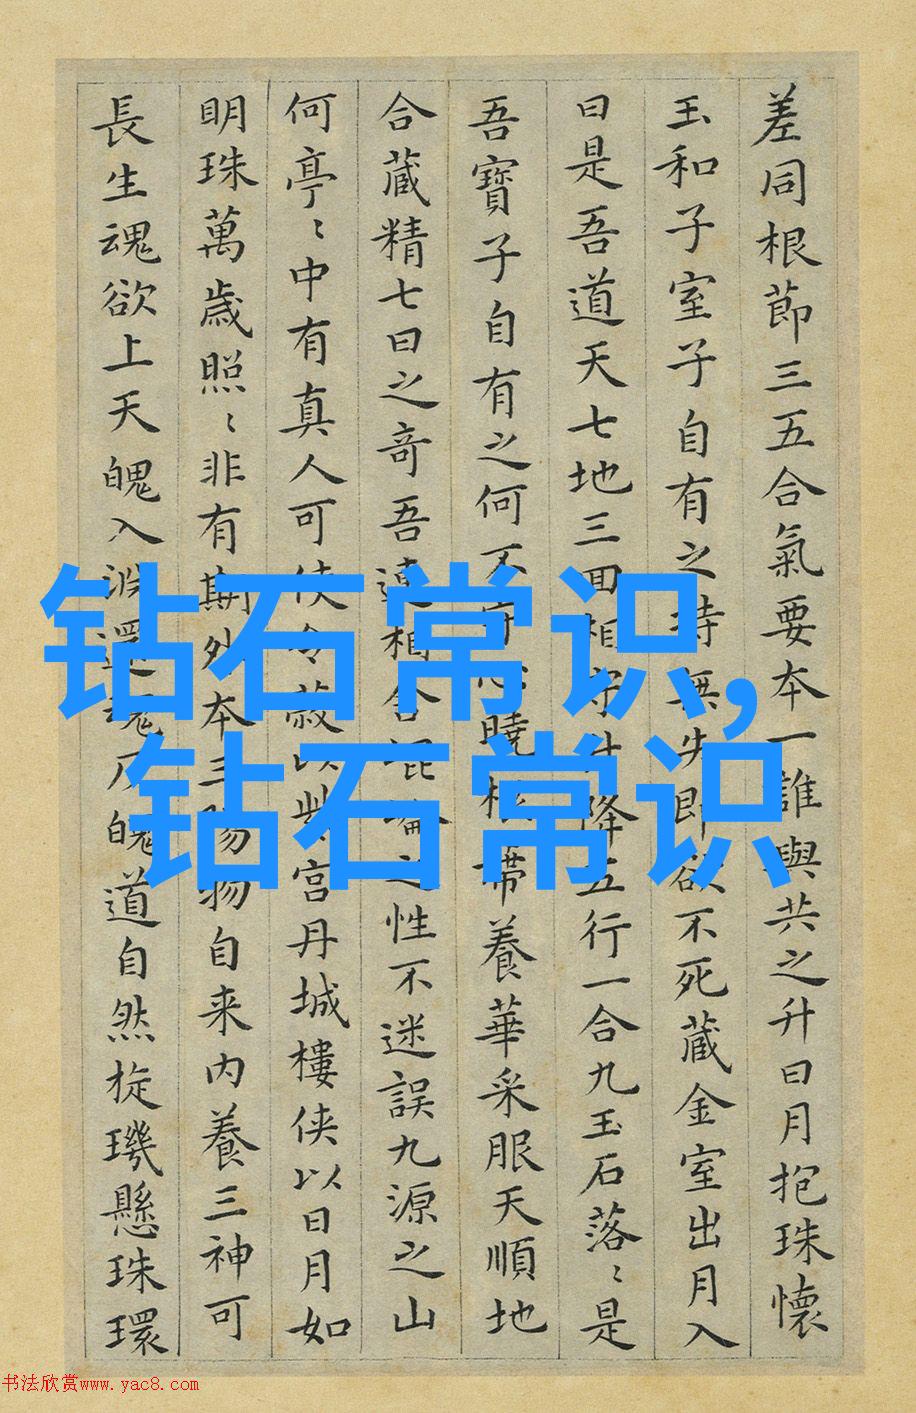 差同根節三五合氣要本一誰與共之升日月抱珠懷
玉和子室子自有之持無失即欲不死藏金室出月入
日是吾道天七地三回相守升降五行一合九玉石落〻是
吾寶子自有之何不守心曉根蒂養華采服天順地
合藏精七日之奇吾連相合崑崙之性不迷誤九源之山
何亭〻中有真人可使令蔽以紫宮丹城樓俠以日月如
明珠萬歲照〻非有期外本三陽物自来內養三神可
長生魂欲上天魄入淵還魂反魄道自然旋璣懸珠環
钻石常识,
钻石常识
书法欣赏www.yac8.com